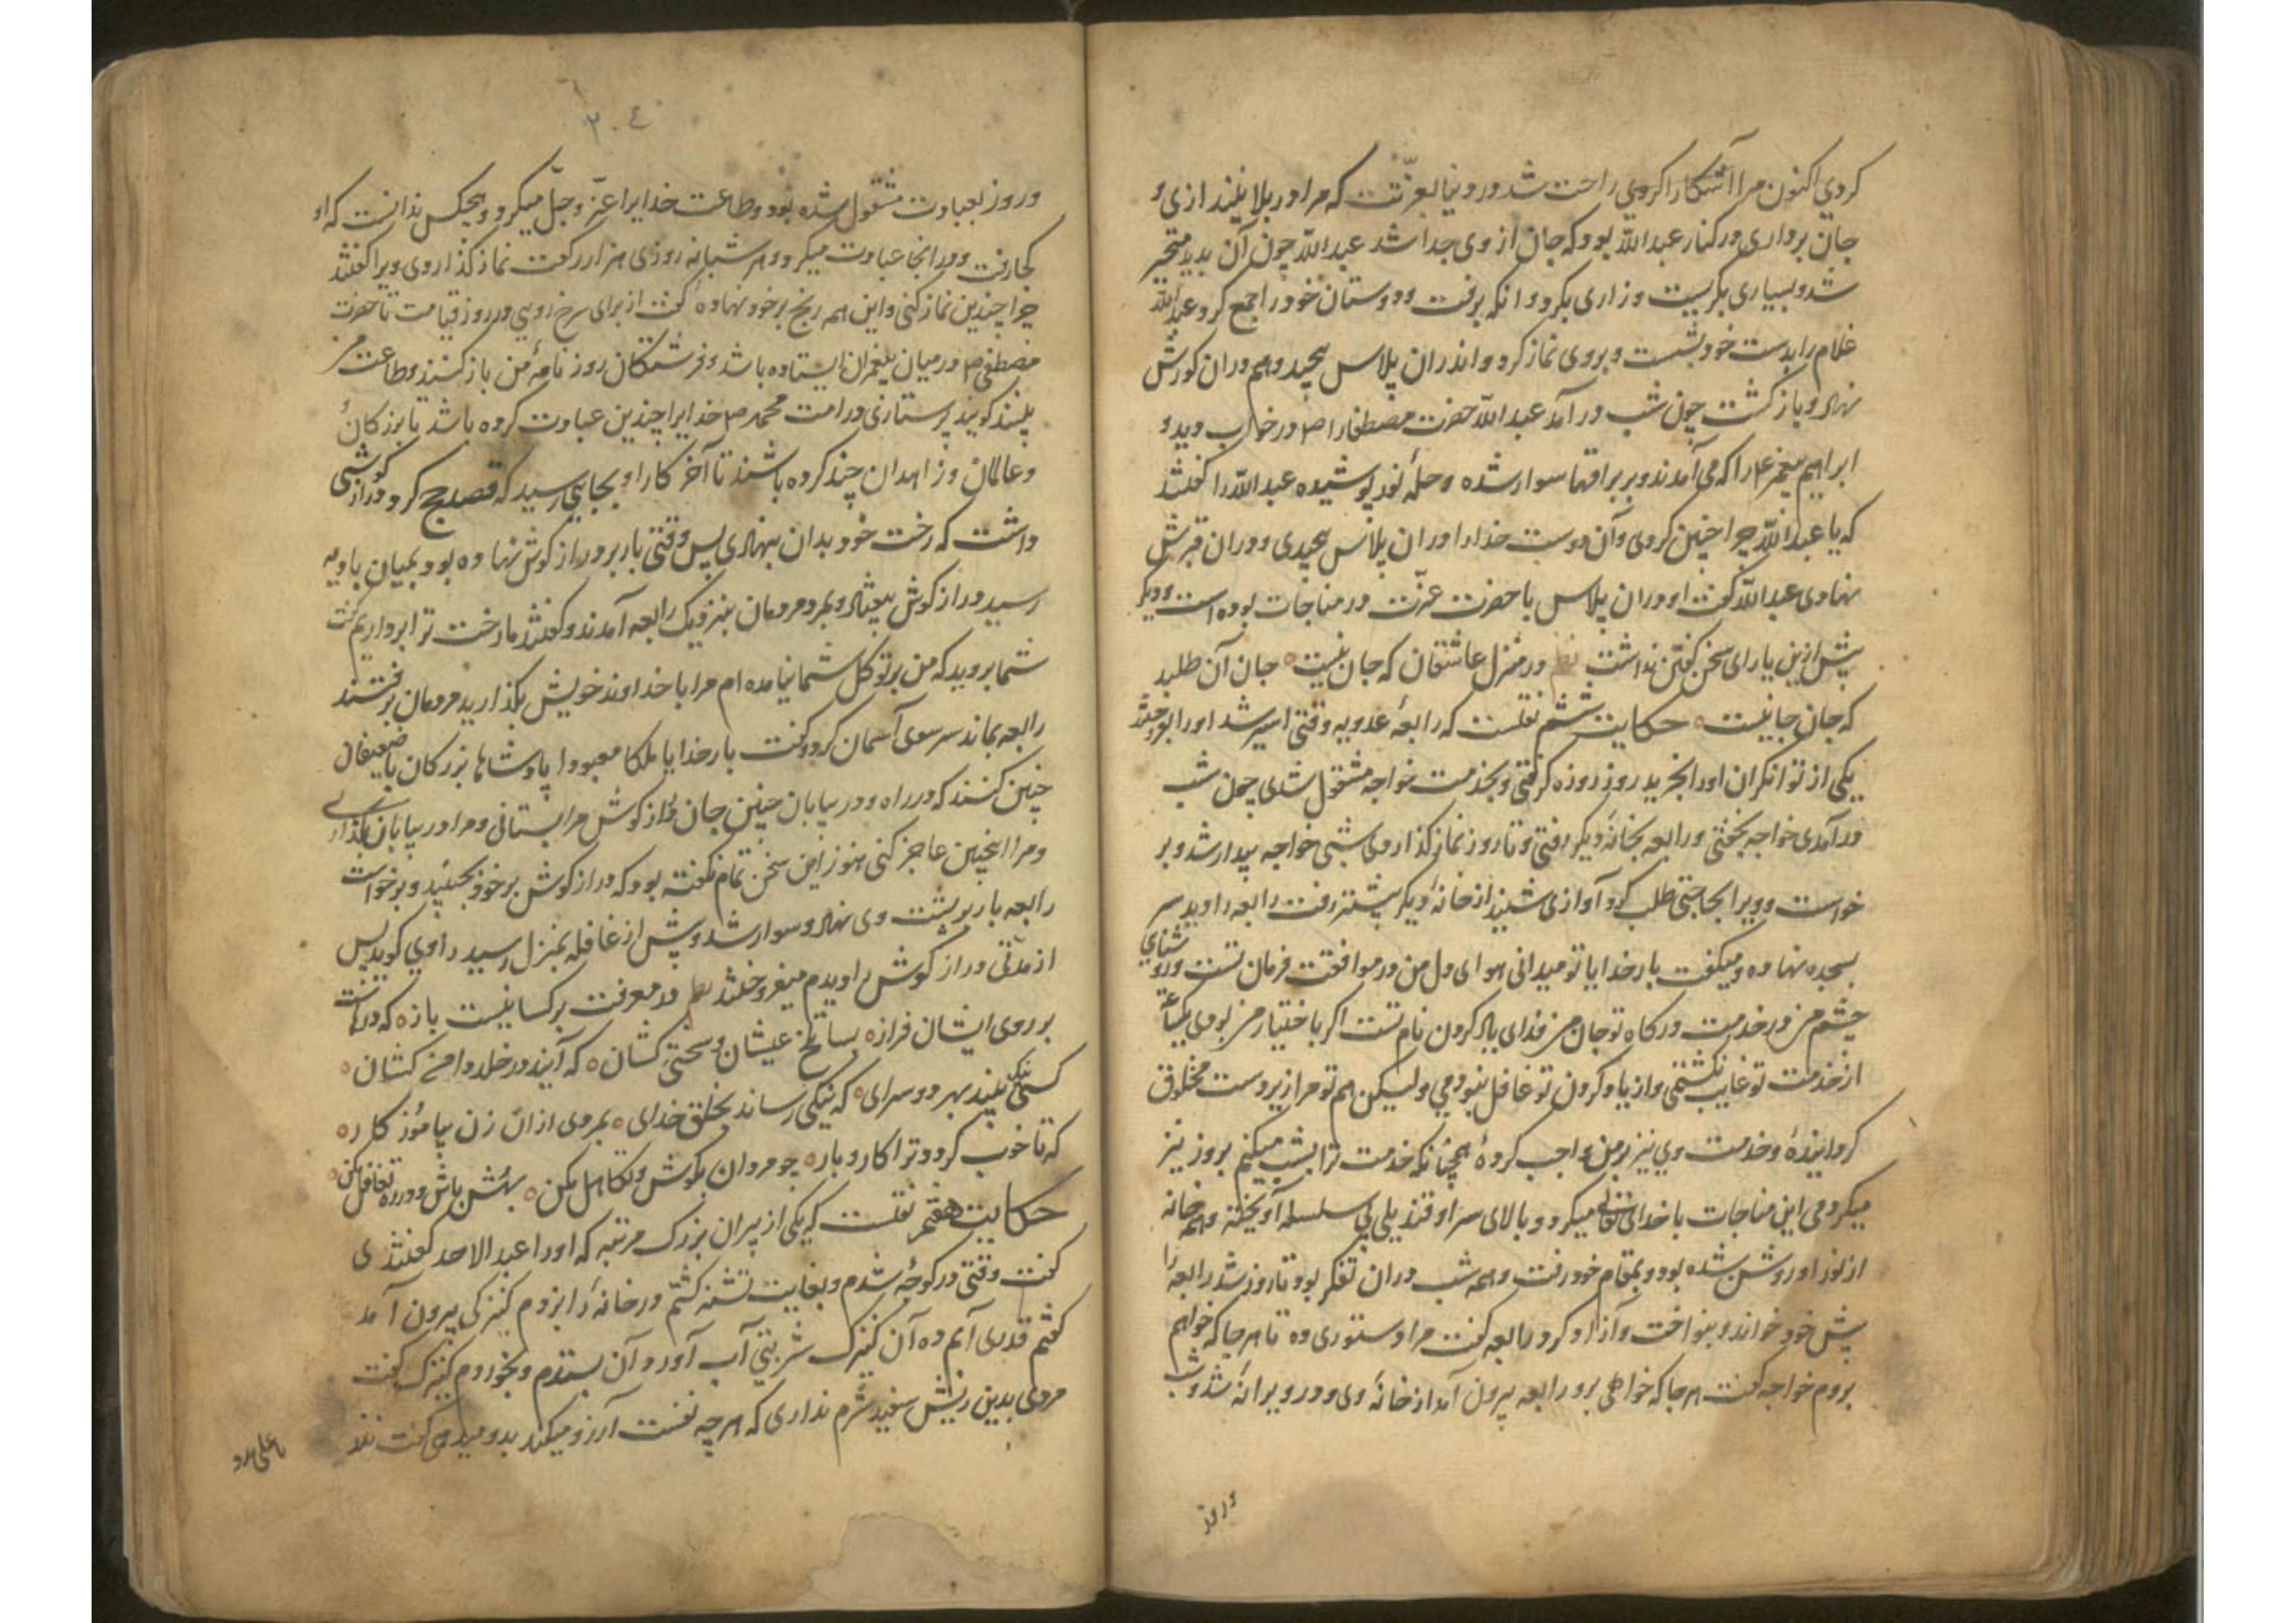 کردی اکنون مرا آشکارا کردی راحت شد در دنیا بعزتت که مرا در بلا نیندازی و
جان برداری در کنار عبدالله بود که جان از وی جدا شد عبدالله چون آن بدید متحیر
شد و بسیاری بگریست و زاری بکرد وانکه برفت و دوستان خود را جمع کرد و عبدالله
غلام را بدست خود بشست و بروی نماز کرد و اندران پلاس پیچید و هم دران کورش
نهاد و بازگشت چون شب درآمد عبدالله حضرت مصطفی را ص در خواب دید و
ابراهیم پیغمبر ع را که می آمدند و بر براقها سوار شده و حله نور پوشیده عبدالله را گفتند
که یا عبدالله چرا چنین کردی و آن دوست خدا را دران پلاس پیچیدی و دران قبرش
نهادی عبدالله گفت او دران پلاس با حضرت عزت در مناجات بوده است و دیگر
پیش ازین یارای سخن گفتن نداشت نظم در منزل عاشقان که جان نیست جان آن طلبد
که جان جانیست حکایت ششم نقلست که رابعه عدویه وقتی اسیر شد او را بفروختند
یکی از توانگران او را بخرید روز روزه گرفتی و بخدمت خواجه مشغول شدی چون شب
درآمدی خواجه بخفتی و رابعه بخانه دیگر رفتی و تا روز نماز گذاردی شبی خواجه بیدار شد و بر
خواست و ویرا بحاجتی طلب کرد آوازی شنید از خانه دیگر پیشتر رفت رابعه را دید سر
بسجده نهاده و میگفت بار خدایا تو میدانی هوای دل من در موافقت فرمان تست و روشنای
چشم من در خدمت درگاه تو جان من فدای یاد کردن نام تست اگر باختیار من بودی یکساعت
از خدمت تو غایب نگشتمی و از یاد کردن تو غافل نبودمی ولیکن هم تو مرا زیردست مخلوق
گردانیده و خدمت وی نیز بر من واجب کرده همچنانکه خدمت ترا بشب میکنم بروز نیز
میکردمی این مناجات با خدای تعالی میکرد و بالای سر او قندیلی بی سلسله آویخته و همه خانه
از نور او روشن شده بود و بمقام خود رفت و همه شب دران تفکر بود تا روز شد رابعه را
پیش خود خواند و بنواخت و آزاد کرد رابعه گفت مرا دستوری ده تا هر جا که خواهم
بروم خواجه گفت هر جا که خواهی برو رابعه بیرون آمد از خانه وی و در ویرانه شد و شب
و روز
۲۰٤
و روز بعبادت مشغول شده بود و طاعت خدایرا عز و جل میکرد و هیچکس ندانست که او
کجا رفت و درانجا عبادت میکرد و هر شبانه روزی هزار رکعت نماز گذاردی ویرا گفتند
چرا چندین نماز کنی و این همه رنج بر خود نهاده گفت از برای سرخ رویی در روز قیامت تا حضرت
مصطفی ص در میان پیغمبران ایستاده باشد و فرشتگان روز نامه من باز کنند و طاعت من
بینند گویند پرستاری در امت محمد ص خدایرا چندین عبادت کرده باشد تا بزرگان
و عالمان و زاهدان چند کرده باشند تا آخر کار او بجایی رسید که قصد حج کرد و دراز گوشی
داشت که رخت خود بدان بنهادی پس وقتی بار بر دراز گوش نهاده بود و بمیان بادیه
رسید دراز گوش بیفتاد و بمرد مردمان بنزدیک رابعه آمدند و گفتند ما رخت ترا برداریم گفت
شما بروید که من بر توکل شما نیامده ام مرا با خداوند خویش بگذارید مردمان برفتند
رابعه بماند سر سوی آسمان کرد و گفت بار خدایا ملکا معبودا پادشاها بزرگان با ضعیفان
چنین کنند که در راه و در بیابان چنین جان دراز گوش مرا بستانی و مرا در بیابان بگذاری
و مرا اینچنین عاجز کنی هنوز این سخن تمام نگفته بود که دراز گوش بر خود بجنبید و برخواست
رابعه بار بر پشت وی نهاد و سوار شد و پیش از غافله بمنزل رسید راوی گوید پس
از مدتی دراز گوش را دیدم میفروختند نظم در معرفت بر کسا نیست باز که درهاست
بر روی ایشان فراز بسا تلخ عیشان و سختی کشان که آیند در خلد دامن کشان
کسی نیک بیند بهر دو سرای که نیکی رساند بخلق خدای بمردی ازان زن بیاموز کار
که تا خوب گردد ترا کار و بار چو مردان بکوش و تکاهل مکن بهش باش و در ره تغافل مکن
حکایت هفتم نقلست که یکی از پیران بزرگ مرتبه که او را عبدالاحد گفتندی
گفت وقتی در کوچه شدم و بغایت تشنه گشتم در خانه را بزدم کنیزکی بیرون آمد
گفتم قدری آبم ده آن کنیزک شربتی آب آورد آن بستدم و بخوردم کنیزک گفت
مردی بدین ریش سفید شرم نداری که هر چه نفست آرزو میکند بدو میدهی گفت